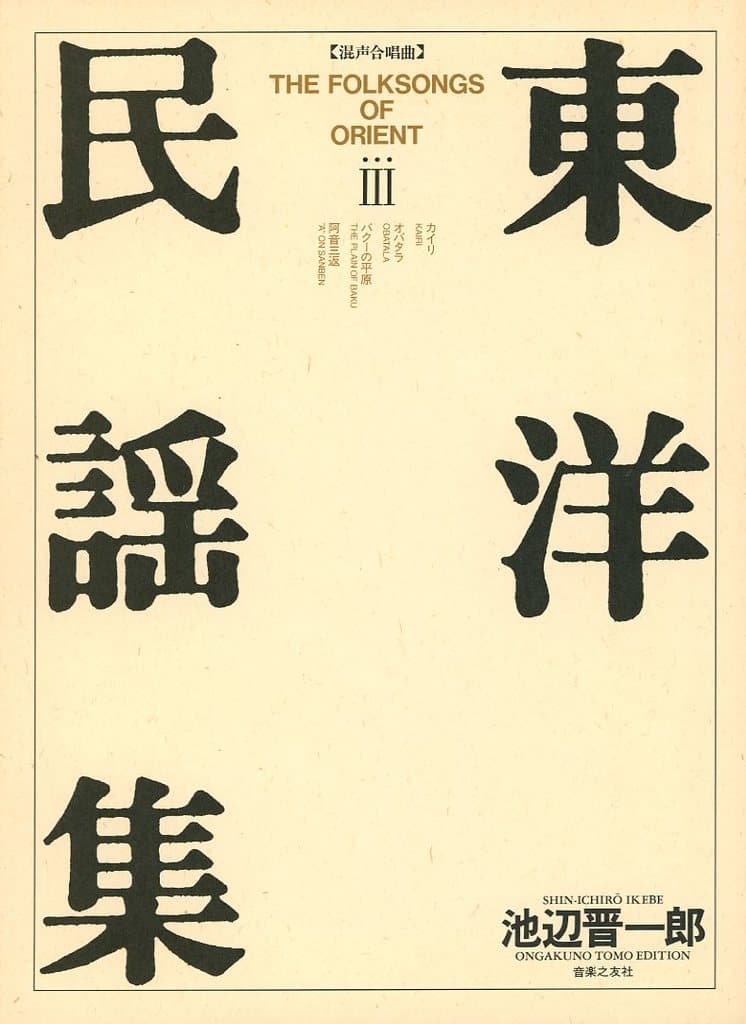 【混声合唱曲】
THE FOLKSONGS
OF
ORIENT
iii
東洋
民謡集
カイリ
KAIRI
オバタラ
OBATALA
バクーの平原
THE PLAIN OF BAKU
阿音三返
"A" ON SANBEN
SHIN-ICHIRŌ IKEBE
池辺晋一郎
ONGAKUNO TOMO EDITION
音楽之友社